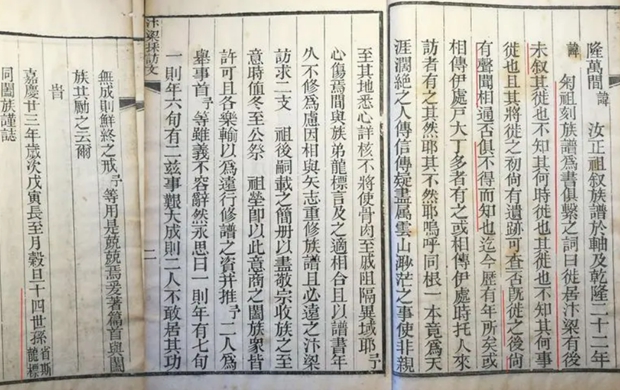 隆萬間
諱
汝正祖叙族譜於軸及乾隆二十二年
諱
匊祖刻族譜爲書俱繫之詞曰徙居汴梁有後
未叙其徙也不知其何時徙也其徙也不知其何事
徙也且其將徙之初尚有遺跡可查否既徙之後尚
有聲聞相通否俱不得而知也迄今歷有年所矣或
相傳伊處戸大丁多者有之或相傳伊處時托人來
訪者有之其然耶其不然耶嗚呼同根一本竟爲天
涯濶絕之人傳信傳疑盡屬雲山渺茫之事使非親
至其地悉心詳核不將使骨肉至戚阻隔異域耶予
心傷焉間與族弟龍標言及之適相合且以譜書年
久不修爲慮因相與矢志重修族譜且必遠之汴梁
訪求二支
祖後嗣載之簡册以盡敬宗收族之至
意時值冬至公祭
祖塋卽以此意商之闔族衆皆
許可且各樂輸以爲遠行修譜之資并推予二人爲
舉事首予等雖義不容辭然永思曰一則年有七旬
一則年六旬有二兹事艱大成則二人不敢居其功
汴梁採訪文
二
無成則鮮終之戒予等用是兢兢焉爰著篇首與闔
族其勵之云爾
旹
嘉慶廿三年歲次戊寅長至月穀旦十四世孫
省斯
龍標
同闔族謹誌